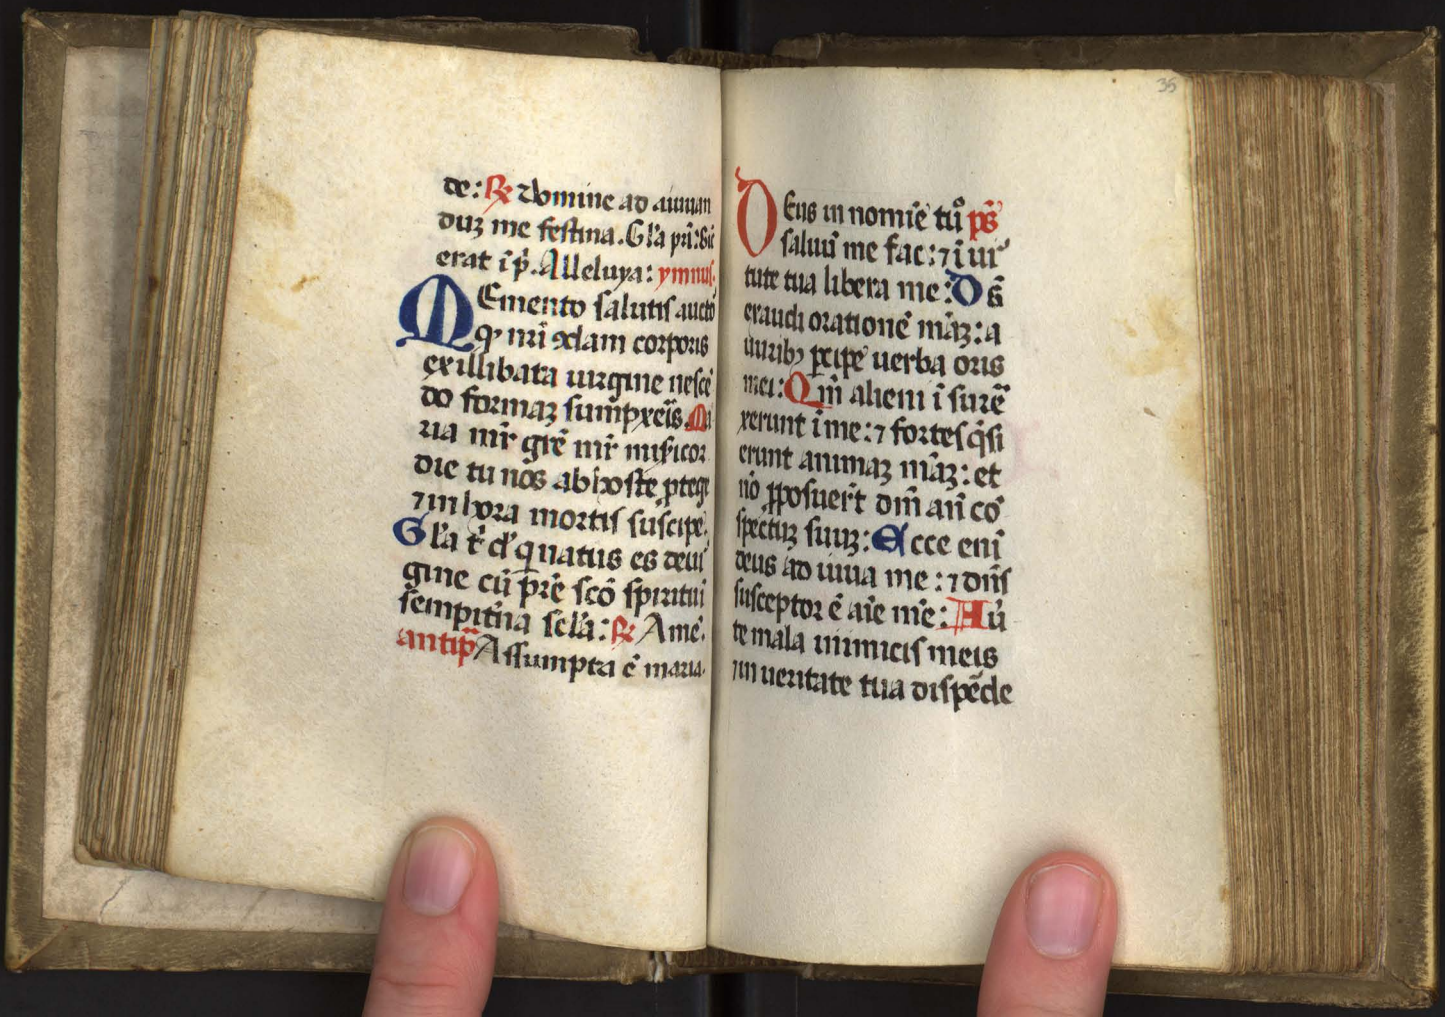 de: ℟ Domine ad aiuuan
duʒ me festina. Gl'a pr̄i: Sic̄
erat ī p̄. Alleluya: ymnus.
MEmento salutis aucto
qꝫ nr̄i ꝙdam corporis
ex illibata uirgine nesce
do formaʒ sump̄xeīs. Ma
ria mr̄ gr̄e mr̄ mīsicor
die tu nos ab hoste ꝓtege
⁊ in hora mortis suscipe.
Gl'a t' d' q̄ natus es de ui
gine cū p̄re sc̄o spiritui
sempit'na sel'a: ℟ Amē.
antip̄ Assumpta ē maria.
35
DEus in nomīe tuo p̄s
saluū me fac: ⁊ ī uir
tute tua libera me: Ds̄
exaudi orationē mēaʒ: a
uribꝫ ꝑcipe uerba oris
mei: Qm̄ alieni īsurē
xerunt ī me: ⁊ fortes q̄si
erunt animaʒ mēaʒ: et
nō ꝓposuer̄t dm̄ an̄ cō
spectuʒ suuʒ: Ecce enī
deus ad iuua me: ⁊ dn̄s
susceptor ē aīe mēe: Auer
te mala inimicis meis
⁊ in ueritate tua dispēde